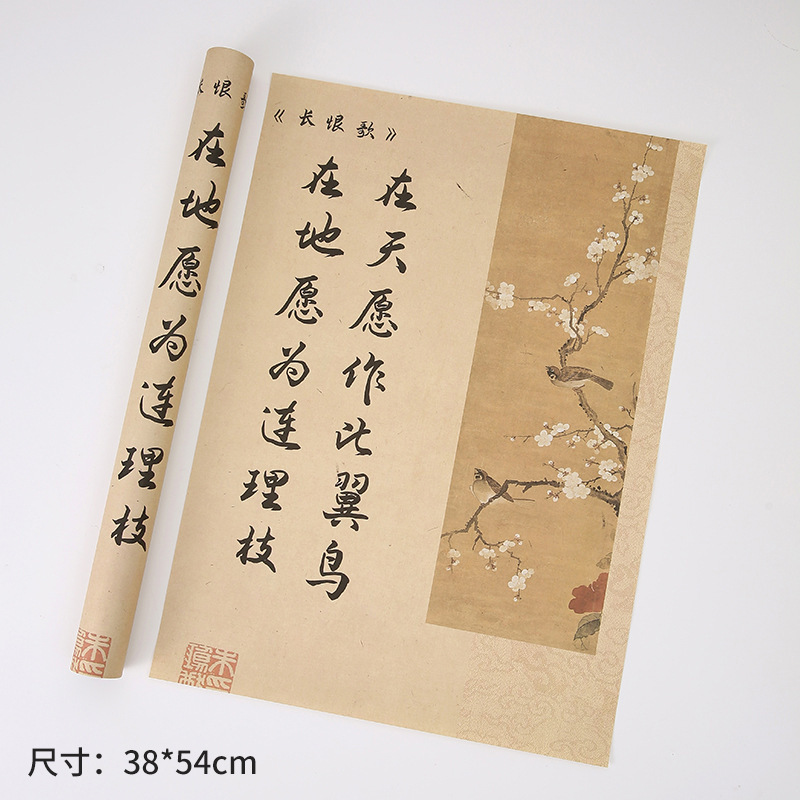 《长恨歌》
在天愿作比翼鸟
在地愿为连理枝
恨歌
在地愿为连理枝
尺寸：38*54cm